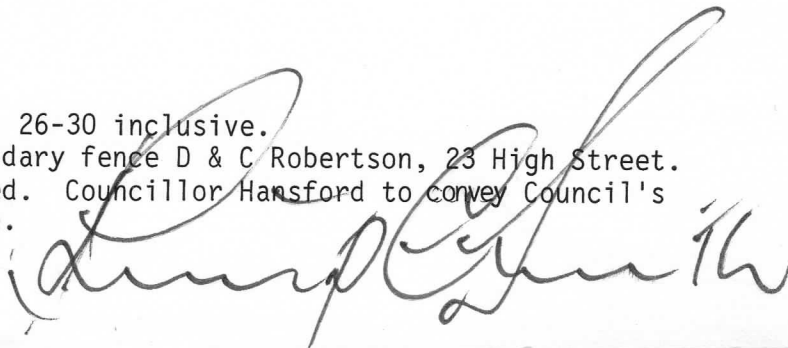 26-30 inclusive.
dary fence D & C Robertson, 23 High Street.
d. Councillor Hansford to convey Council's